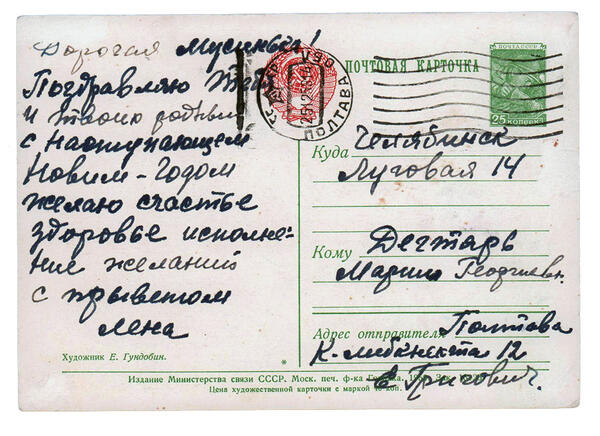 Дорогая Мусинька!
Поздравляю Тебя
и твоих родных
с наступающем
Новим-Годом
желаю счастье
здоровье исполне-
ние желаний
с прыветом
Лена
Художник Е. Гундобин.
ПОЧТОВАЯ КАРТОЧКА
ПОЧТА СССР
25 КОПЕЕК
ПОЛТАВА ОБЛ
Куда Челябинск
Луговая 14
Кому Дегтярь
Марии Георгиевн.
Адрес отправителя Полтава
К-либкнехта 12
Е Григович.
Издание Министерства связи СССР. Моск. печ. ф-ка
Цена художественной карточки с маркой коп.